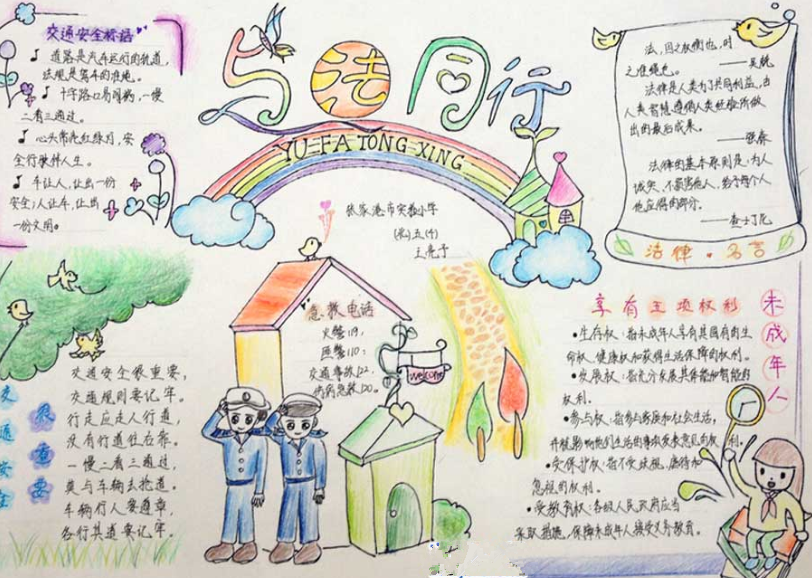 交通安全标语
道路是汽车运行的轨道,
法规是驾车的准绳。
十字路口易闯祸,一慢
二看三通过。
心头常亮红绿灯,安
全行驶伴人生。
车让人,让出一份
安全;人让车,让出
一份文明。
与法同行
YU-FA TONG XING
张家港市实验小学
五(4)
法,国之权衡也,时
之准绳也。
——吴兢
法律是人类为了共同利益,由
人类智慧遵循人类经验所做
出的最后成果。
——强森
法律的基本原则是:为人
诚实,不损害他人,给予每个人
他应得的部分。
——查士丁尼
法律·名言
急救电话
火警119,
匪警110,
交通事故122.
病病急救120。
welcome
交通安全很重要
交通安全很重要,
交通规则要记牢。
行走应走人行道,
没有行道往右靠。
一慢二看三通过,
莫与车辆去抢道。
车辆行人要遵章,
各行其道要记牢。
未成年人
享有五项权利
•生存权:指未成年人享有其固有的生
命权、健康权和获得生活保障的权利。
•发展权:指充分发展其体能和智能的
权利。
•参与权:指参与家庭和社会生活,
并就影响他们生活的事项发表意见的权利。
•受保护权:指不受歧视、虐待和
忽视的权利。
•受教育权:各级人民政府应当
采取措施,保障未成年人接受义务教育。